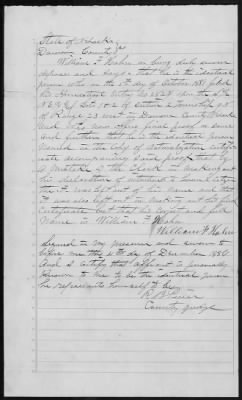 State of Nebraska
Dawson County } ss
William F. Hahn being duly sworn
deposes and says that he is the identical
person who on the 5th day of October 1881 filed
his Homestead Entry No. upon the
of Section 2 Township 9 N
of Range 23 west in Dawson County Neb
and was now filing final proof on same
and further says that the identical person
named in the copy of naturalization certifi-
cate accompanying said proof that
a mistake of the Clerk in making out
his declaration of intention to become
the F. was left out of his name and that
F. was also left out in making out his final
Certificate but that his correct and full
name is William F. Hahn
William F. Hahn
Signed in my presence and sworn to
before me this 4th day of December 1886
and I certify that affiant is personally
known to me to be the identical person
he represents himself to be
R. B. Pierce
County Judge